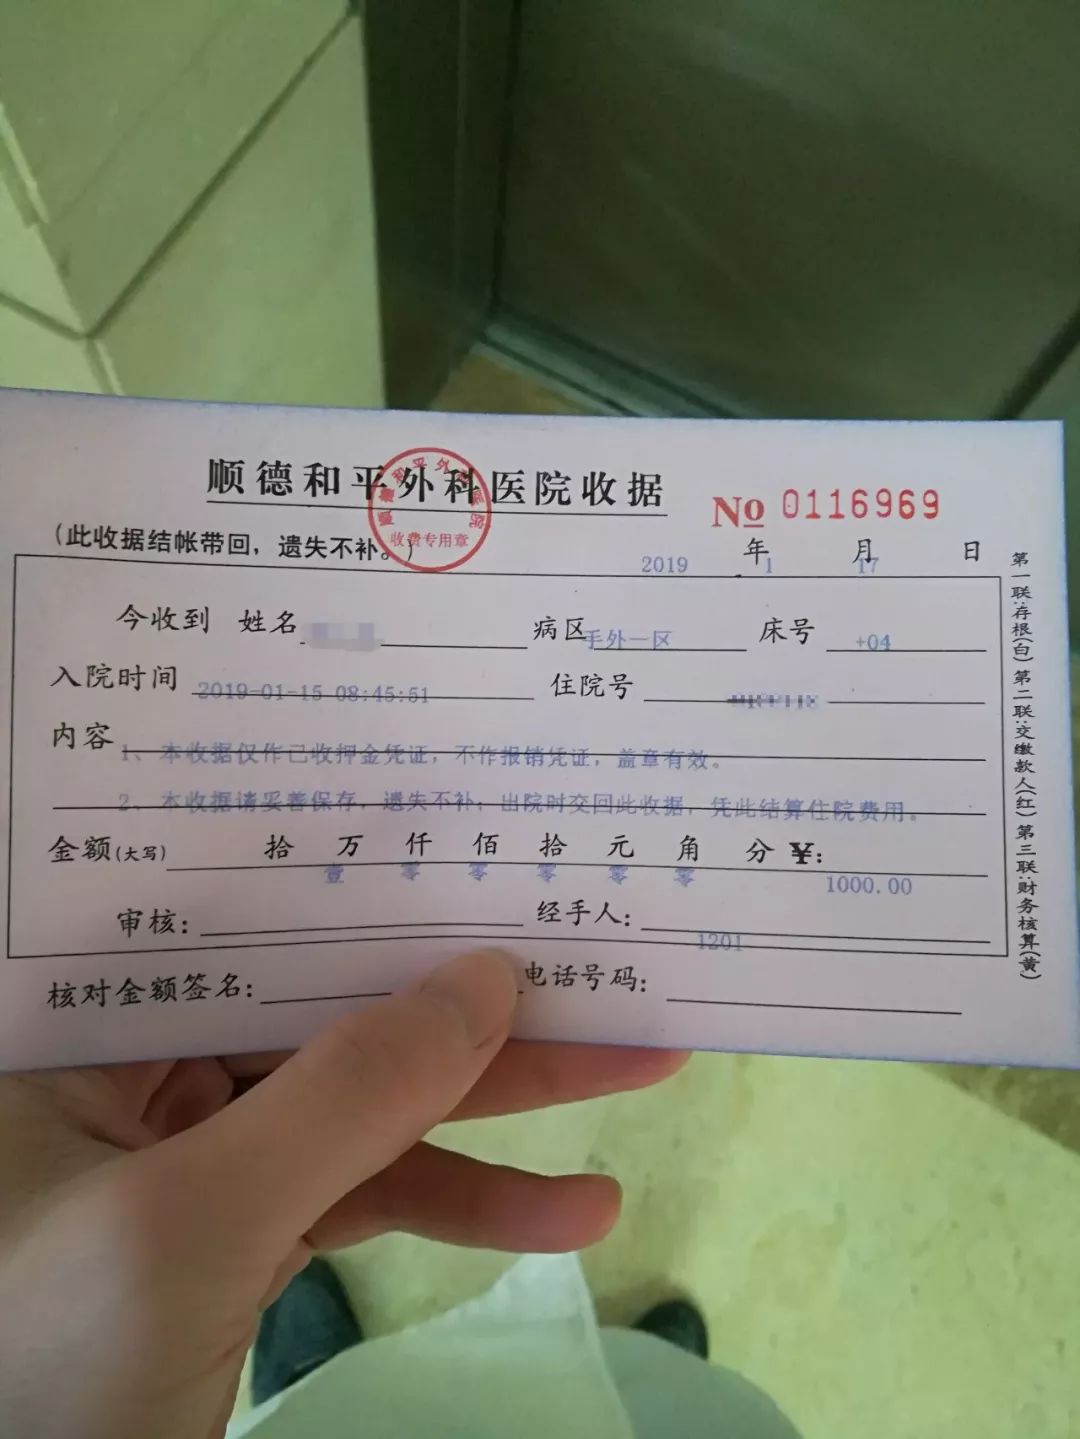 顺德和平外科医院收据
顺德和平外科医院
收费专用章
No 0116969
(此收据结帐带回，遗失不补。)
2019 年 1 月 17 日
今收到 姓名 病区 手外一区 床号 +04
入院时间 2019-01-15 08:45:51 住院号
内容 1、本收据仅作已收押金凭证，不作报销凭证，盖章有效。
2、本收据请妥善保存，遗失不补；出院时交回此收据，凭此结算住院费用。
金额(大写) 拾 万 仟 佰 拾 元 角 分 ¥:
壹 零 零 零 零 零 1000.00
审核: 经手人: 1201
核对金额签名: 电话号码:
第一联:存根(白) 第二联:交缴款人(红) 第三联:财务核算(黄)